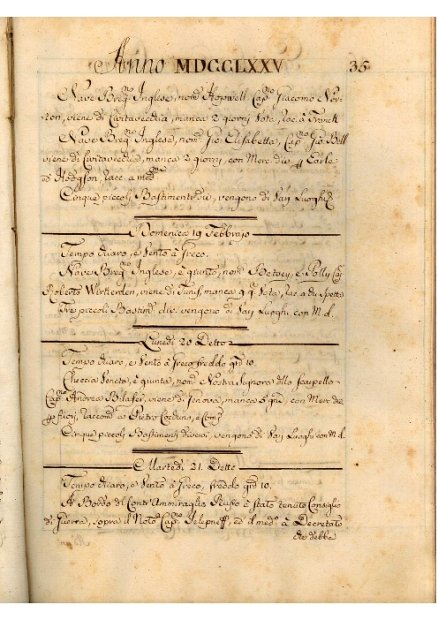 Anno MDCCLXXV 35
Nave Breg.no Inglese, nom.a Hopwell Cap.no Giacomo Nor-
ton, viene di Civitavecchia, manca 2 giorni Vota, racc. à
Nave Breg.no Inglese, nom.a Gio. Elisabetta, Cap.no Gio. Bell
viene di Civitavecchia, manca 2 giorni, con Merc. die p. Earle
e Hodgson, racc. a med.mi
Cinque piccoli Bastimenti div. vengono di Varj Luoghi
Domenica 19 Febbrajo
Tempo chiaro, e Vento à Greco.
Nave Breg.no Inglese, è giunta, nom.a Betsey e Polly Cap.
Roberto, viene di Tunis, manca g.ni Vota,
Tre piccoli Bastim. div. vengono di Varj Luoghi con M. d.
Lunedì 20 Detto
Tempo chiaro, e Vento à Greco freddo gr.di 10.
Checcia Veneta, è giunta, nom.a Nostra Signora dello Scarpello
Cap.no Andrea, viene di Genova, manca g.ni, con Merc. die
p. fuori, raccom. a Pietro, e Com.
Cinque piccoli Bastimenti diversi, vengono di Varj Luoghi con M. d.
Martedì 21. Detto
Tempo chiaro, e Vento à Greco, freddo gr.di 10.
A Bordo del Contr'Ammiraglio Russo è stato tenuto Consiglio
di Guerra, sopra il Noto Cap.no, ed il med.mo à Decretato
che debba